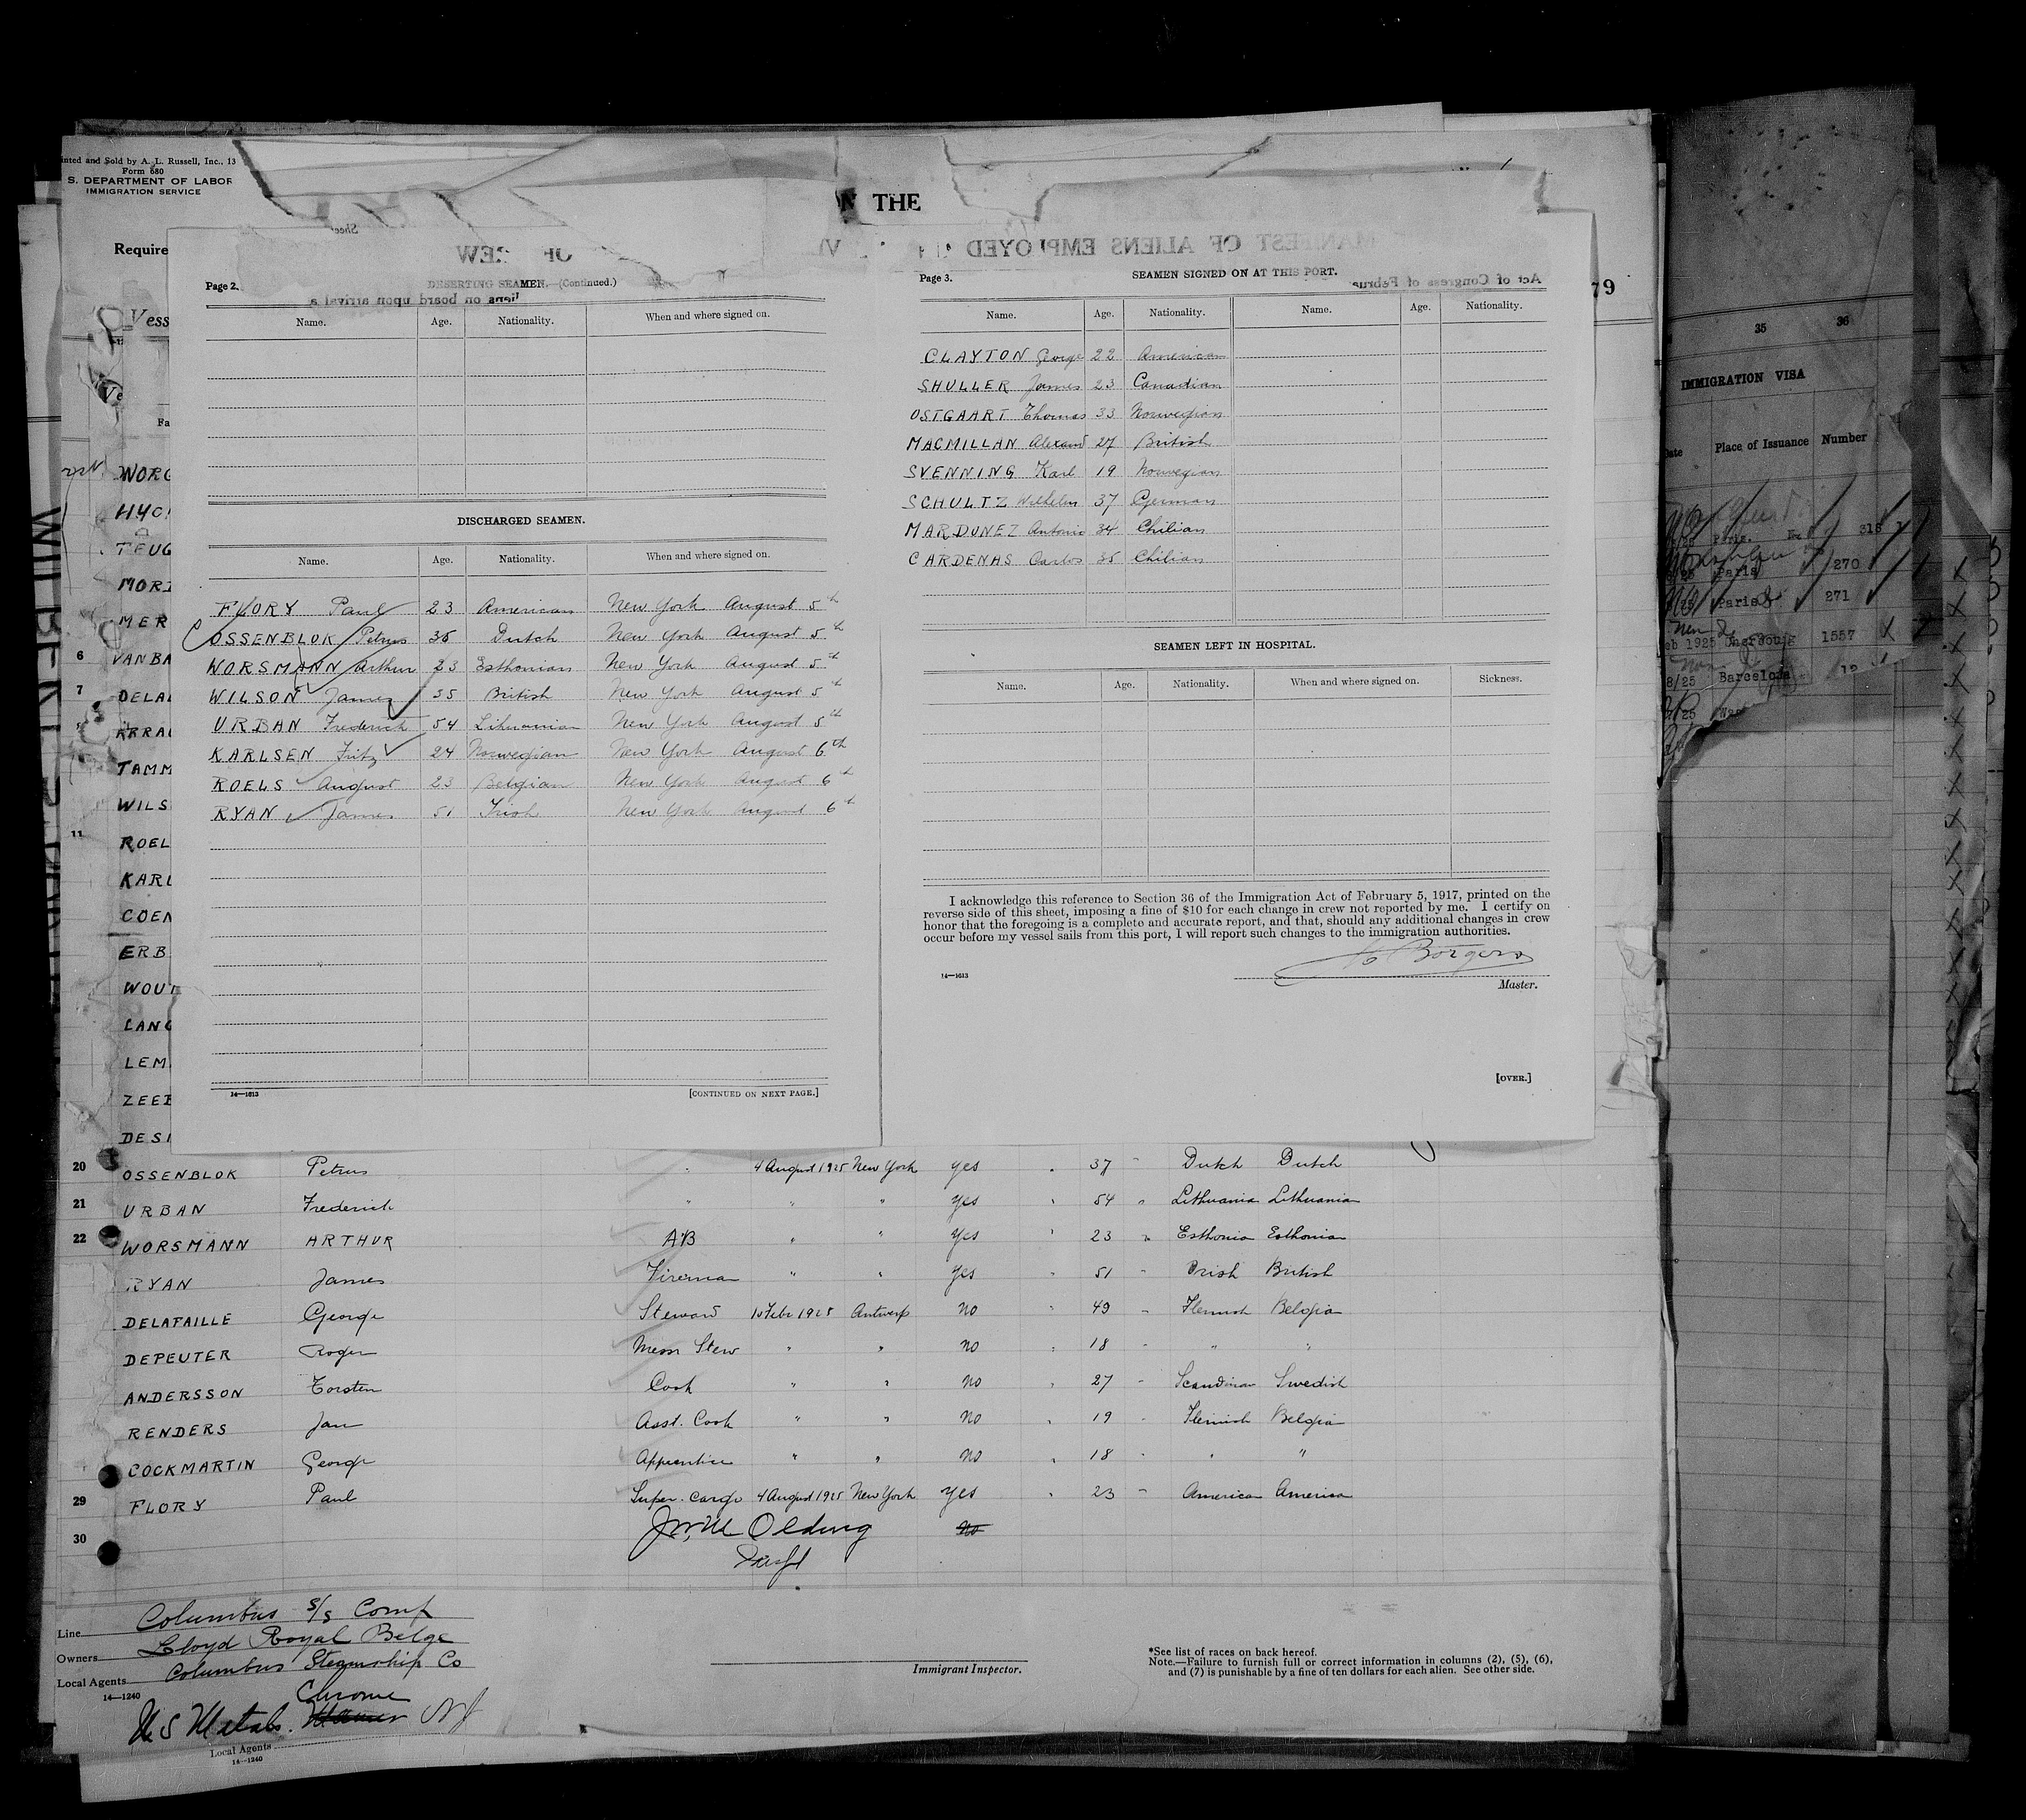 inted and Sold by A. L. Russell, Inc., 13
Form 680
S. DEPARTMENT OF LABOR
IMMIGRATION SERVICE
N THE
Require
79
Vess
Ve
Fa
Page 2.
DESERTING SEAMEN.—(Continued.)
Name. Age. Nationality. When and where signed on.
DISCHARGED SEAMEN.
Name. Age. Nationality. When and where signed on.
FLORY Paul 23 American New York August 5th
OSSENBLOK Petrus 36 Dutch New York August 5th
WORSMANN Arthur 23 Esthonian New York August 5th
WILSON James 35 British New York August 5th
URBAN Frederick 54 Lithuanian New York August 5th
KARLSEN Fritz 24 Norwegian New York August 6th
ROELS August 23 Belgian New York August 6th
RYAN James 51 Irish New York August 6th
14—1613 [CONTINUED ON NEXT PAGE.]
Page 3.
SEAMEN SIGNED ON AT THIS PORT.
Name. Age. Nationality. Name. Age. Nationality.
CLAYTON George 22 American
SHULLER James 23 Canadian
OSTGAART Thomas 33 Norwegian
MACMILLAN Alexand 27 British
SVENNING Karl 19 Norwegian
SCHULTZ Wilhelm 37 German
MARDONEZ Antonio 34 Chilian
CARDENAS Carlos 35 Chilian
SEAMEN LEFT IN HOSPITAL.
Name. Age. Nationality. When and where signed on. Sickness.
I acknowledge this reference to Section 36 of the Immigration Act of February 5, 1917, printed on the
reverse side of this sheet, imposing a fine of $10 for each change in crew not reported by me. I certify on
honor that the foregoing is a complete and accurate report, and that, should any additional changes in crew
occur before my vessel sails from this port, I will report such changes to the immigration authorities.
Borgers
14—1613
Master.
[OVER.]
WORG
HYO
TEUG
MORI
MER
6 VAN BA
7 DELA
ARRA
TAMM
WILS
11 ROEL
KARL
COEN
ERB
WOUT
LANG
LEM
ZEEB
DESI
20 OSSENBLOK Petrus " 4 August 1925 New York yes " 37 " Dutch Dutch
21 URBAN Frederick " " " yes " 54 " Lithuania Lithuanian
22 WORSMANN ARTHUR AB " " yes " 23 " Esthonia Esthonian
RYAN James Fireman " " yes " 51 " Irish British
DELATAILLE George Steward 10 Febr 1925 Antwerp no " 49 " Flemish Belgian
DEPEUTER Roger Mess Stew " " no " 18 " " "
ANDERSSON Torsten Cook " " no 27 " Scandinav Swedish
RENDERS Jan Asst. Cook " " no " 19 " Flemish Belgian
COCKMARTIN George Apprentice " " no " 18 " " "
29 FLORY Paul Super. Cargo 4 August 1925 New York yes " 23 " American America
30 Olding no
Line Columbus S/S Comp
Owners Lloyd Royal Belge
Local Agents Columbus Steamship Co
14—1240
Chrome
U S Metals. NJ
Local Agents
14—1240
Immigrant Inspector.
*See list of races on back hereof.
Note.—Failure to furnish full or correct information in columns (2), (5), (6),
and (7) is punishable by a fine of ten dollars for each alien. See other side.
35 36
IMMIGRATION VISA
Date Place of Issuance Number
/25 Paris. 318
/25 Paris 270
/25 Paris 271
eb 1925 Cherbourg 1557
8/25 Barcelona 12
/25